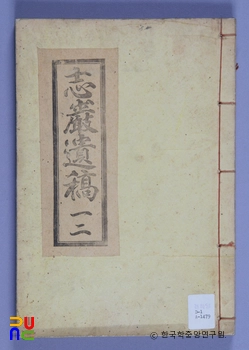 志巖遺稿 一二
한국학중앙연구원